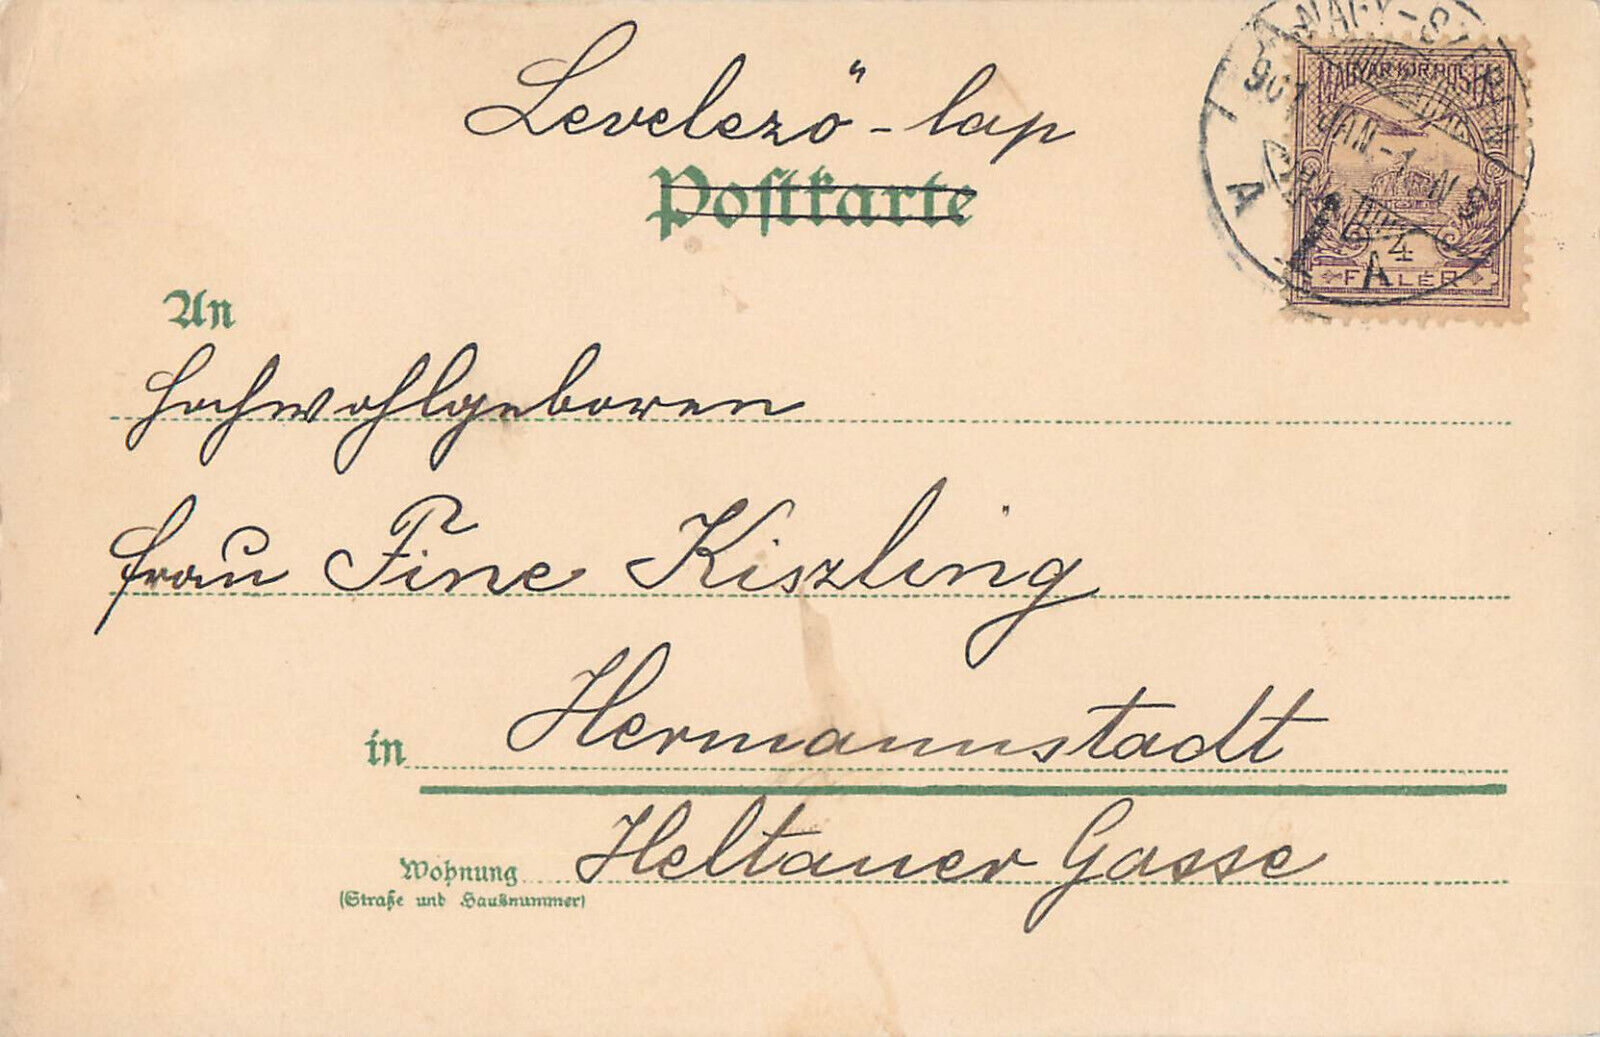 Levelező-lap
Postkarte
MAGYAR KIR. POSTA
907 JAN-1
4
FILLÉR
An
Hochwohlgeboren
Frau Fine Kiszling
in Hermannstadt
Wohnung Heltauer Gasse
(Straße und Hausnummer)